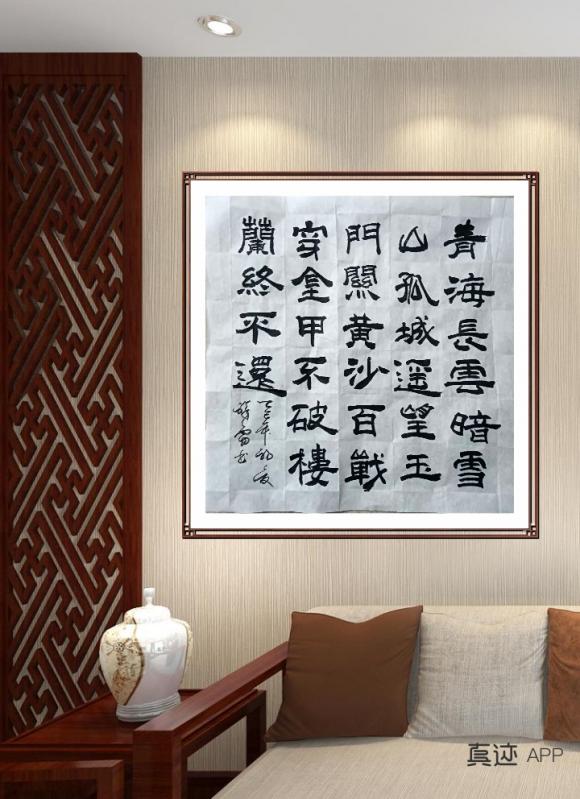 青海長雲暗雪
山孤城遥望玉
門關黄沙百戰
穿金甲不破樓
蘭終不還
年初夏
书
真迹 APP